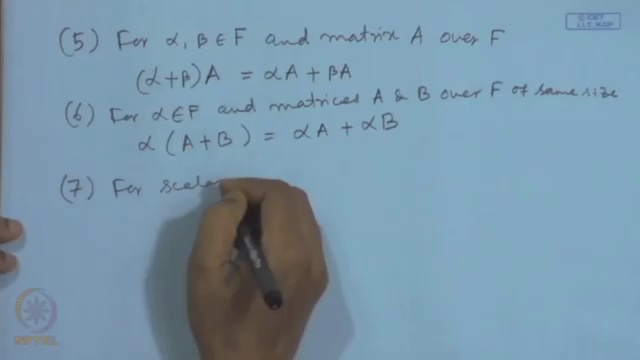 © CET
I.I.T. KGP
(5) For α, β ∈ F and matrix A over F
(α+β)A = αA + βA
(6) For α∈F and matrices A & B over F of same size
α (A+B) = αA + αB
(7) For scala
NPTEL